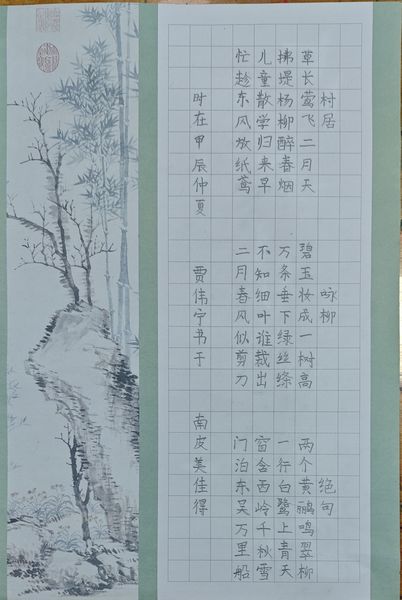 村居
草长莺飞二月天
拂堤杨柳醉春烟
儿童散学归来早
忙趁东风放纸鸢
咏柳
碧玉妆成一树高
万条垂下绿丝绦
不知细叶谁裁出
二月春风似剪刀
绝句
两个黄鹂鸣翠柳
一行白鹭上青天
窗含西岭千秋雪
门泊东吴万里船
时在甲辰仲夏 贾伟宁书于 南皮美佳得